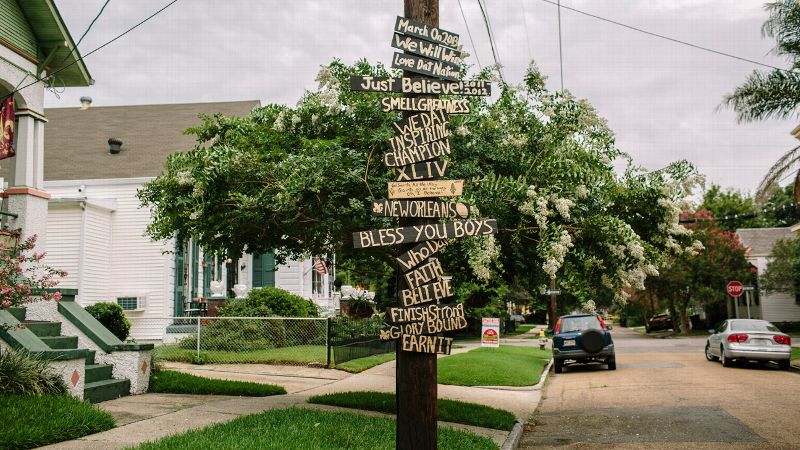 March On 20
We Will Win
Love Dat Nation
Just Believe! 2011
2012
SMELL GREATNESS
WE DAT
INSPIRING
CHAMPION
XLIV
NEW ORLEANS
BLESS YOU BOYS
WHO DAT
FAITH
BELIEVE
FINISH STRONG
GLORY BOUND
EARN IT
STOP